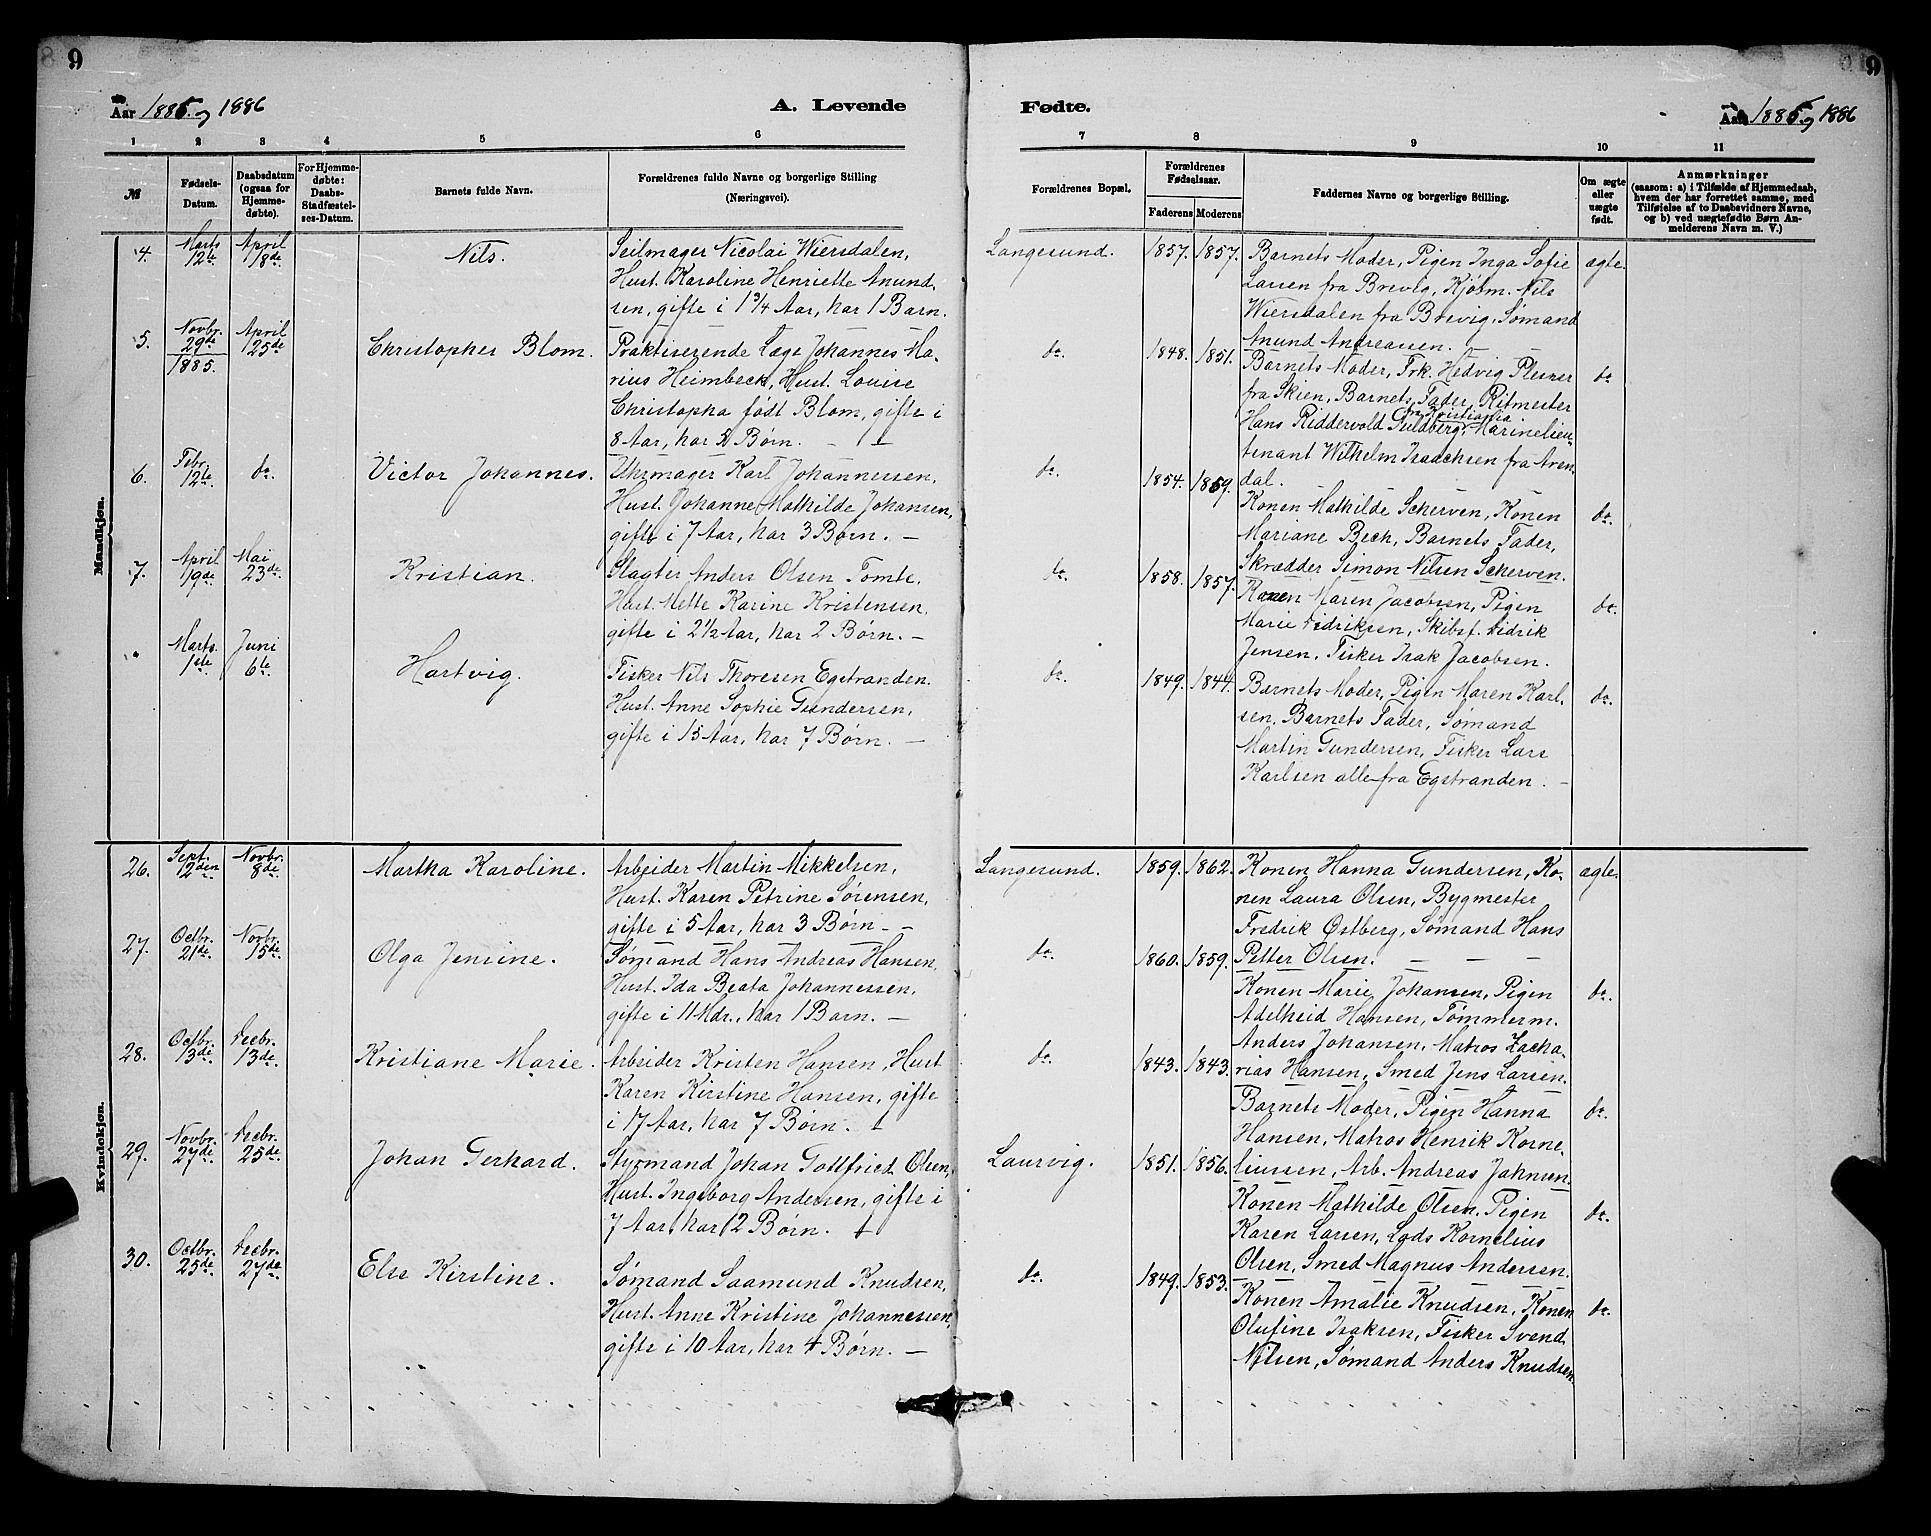 9
Aar 1885 og 1886
A. Levende
1 2 3 4 5 6
№
Fødsels-Datum.
Daabsdatum (ogsaa for Hjemme-døbte).
For Hjemme-døbte: Daabs-Stadfæstel-ses-Datum.
Barnets fulde Navn.
Forældrenes fulde Navne og borgerlige Stilling
(Næringsvei).
Mandkjøn.
4. Marts 12te April 18de Nils.
Seilmager Nicolai Wiersdalen,
Hust. Karoline Henriette Anund-
sen, gifte i 1 3/4 Aar, har 1 Barn.
5. Novbr. 29de 1885. April 25de Christopher Blom.
Praktiserende Læge Johannes Ma-
rius Heimbeck, Hust. Louise
Christopha født Blom, gifte i
8 Aar, har 2 Børn. —
6. Febr. 12te do. Victor Johannes.
Uhrmager Karl Johannessen,
Hust. Johanne Mathilde Johansen,
gifte i 7 Aar, har 3 Børn. —
7. April 19de Mai 23de Kristian.
Slagter Anders Olsen Tomte,
Hust. Mette Karine Kristensen,
gifte i 2 1/2 Aar, har 2 Børn. —
" Marts 1ste Juni 6te Hartvig.
Fisker Nils Thoresen Egstranden.
Hust. Anne Sophie Gundersen,
gifte i 15 Aar, har 7 Børn. —
Kvindekjøn.
26. Sept. 12den Novbr. 8de Martha Karoline.
Arbeider Martin Mikkelsen,
Hust. Karen Petrine Sørensen,
gifte i 5 Aar, har 3 Børn — —
27. Octbr. 21de Novbr. 15de Olga Jensine.
Sømand Hans Andreas Hansen,
Hust. Ida Beata Johannessen,
gifte i 11 Mdr., har 1 Barn. —
28. Octbr. 13de Decbr. 13de Kristiane Marie.
Arbeider Kristen Hansen, Hust
Karen Kirstine Hansen, gifte
i 17 Aar, har 7 Børn. —
29. Novbr. 27de Decbr. 25de Johan Gerhard.
Styrmand Johan Gottfried Olsen,
Hust. Ingeborg Andersen, gifte i
7 Aar, har 2 Børn. —
30. Octbr. 25de Decbr. 27de Else Kirstine.
Sømand Saamund Knudsen,
Hust. Anne Kristine Johannessen,
gifte i 10 Aar, har 4 Børn. —
9
Fødte.
Aar 1885 og 1886
7 8 9 10 11
Forældrenes Bopæl.
Forældrenes Fødselsaar.
Faderens Moderens
Faddernes Navne og borgerlige Stilling.
Om ægte eller uægte født.
Anmærkninger
(saasom: a) i Tilfælde af Hjemmedaab,
hvem der har forrettet samme, med
Tilføielse af to Daabsvidners Navne,
og b) ved uægtefødte Børn An-
melderens Navn m. V.)
Langesund. 1857. 1857. Barnets Moder, Pigen Inga Sofie ægte.
Larsen fra Brevig, Kjøbm. Nils
Wiersdalen fra Brevig, Sømand
Anund Andreassen. — —
do. 1848. 1851. Barnets Moder, Frk. Hedvig Plesner do.
fra Skien, Barnets Fader, Ritmester
fra Kristiania
Hans Riddervold Guldberg, Marinelieu-
tenant Wilhelm Isaachsen fra Aren-
dal.
do. 1854. 1859. Konen Mathilde Scherven, Konen do.
Mariane Bech, Barnets Fader,
Skrædder Simon Nilsen Scherven.
do. 1858. 1857. Konen Maren Jacobsen, Pigen do.
Marie Didriksen, Skibsf. Didrik
Jensen, Fisker Isak Jacobsen.
do. 1849. 1844. Barnets Moder, Pigen Maren Karl- do.
sen, Barnets Fader, Sømand
Martin Gundersen, Fisker Lars
Karlsen alle fra Egstranden. —
Langesund. 1859. 1862. Konen Hanna Gundersen, Ko- ægte.
nen Laura Olsen, Bygmester
Fredrik Østberg, Sømand Hans
Petter Olsen. — — —
do. 1860. 1859. Konen Marie Johansen, Pigen do.
Adelheid Hansen, Tømmerm.
Anders Johansen, Matros Zacha-
rias Hansen, Smed Jens Larsen.
do. 1843. 1843. Barnets Moder, Pigen Hanna do.
Hansen, Matros Henrik Korne-
liussen, Arb. Andreas Jahnsen.
Laurvig. 1851. 1856. Konen Mathilde Olsen, Pigen do.
Karen Larsen, Lods Kornelius
Olsen, Smed Magnus Andersen.
do. 1849. 1853. Konen Amalie Knudsen, Konen do.
Olufine Isaksen, Fisker Svend
Nilsen, Sømand Anders Knudsen.